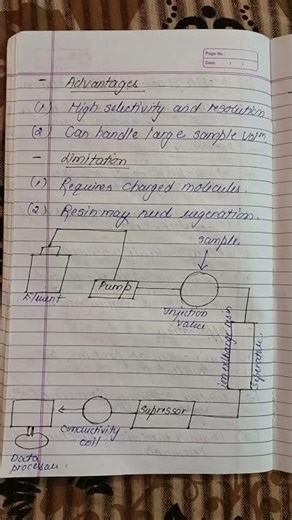 Page No.:
Date: / /
- Advantages
(1) High selectivity and resolution
(2) Can handle large sample volm.
- Limitation
(1) Requires charged molecules.
(2) Resin may need regeration.
Sample
Eluent
Pump
Injection
Value
ion exchange resin
Seperator
Supressor
Conductivity
coil
Data
processor.